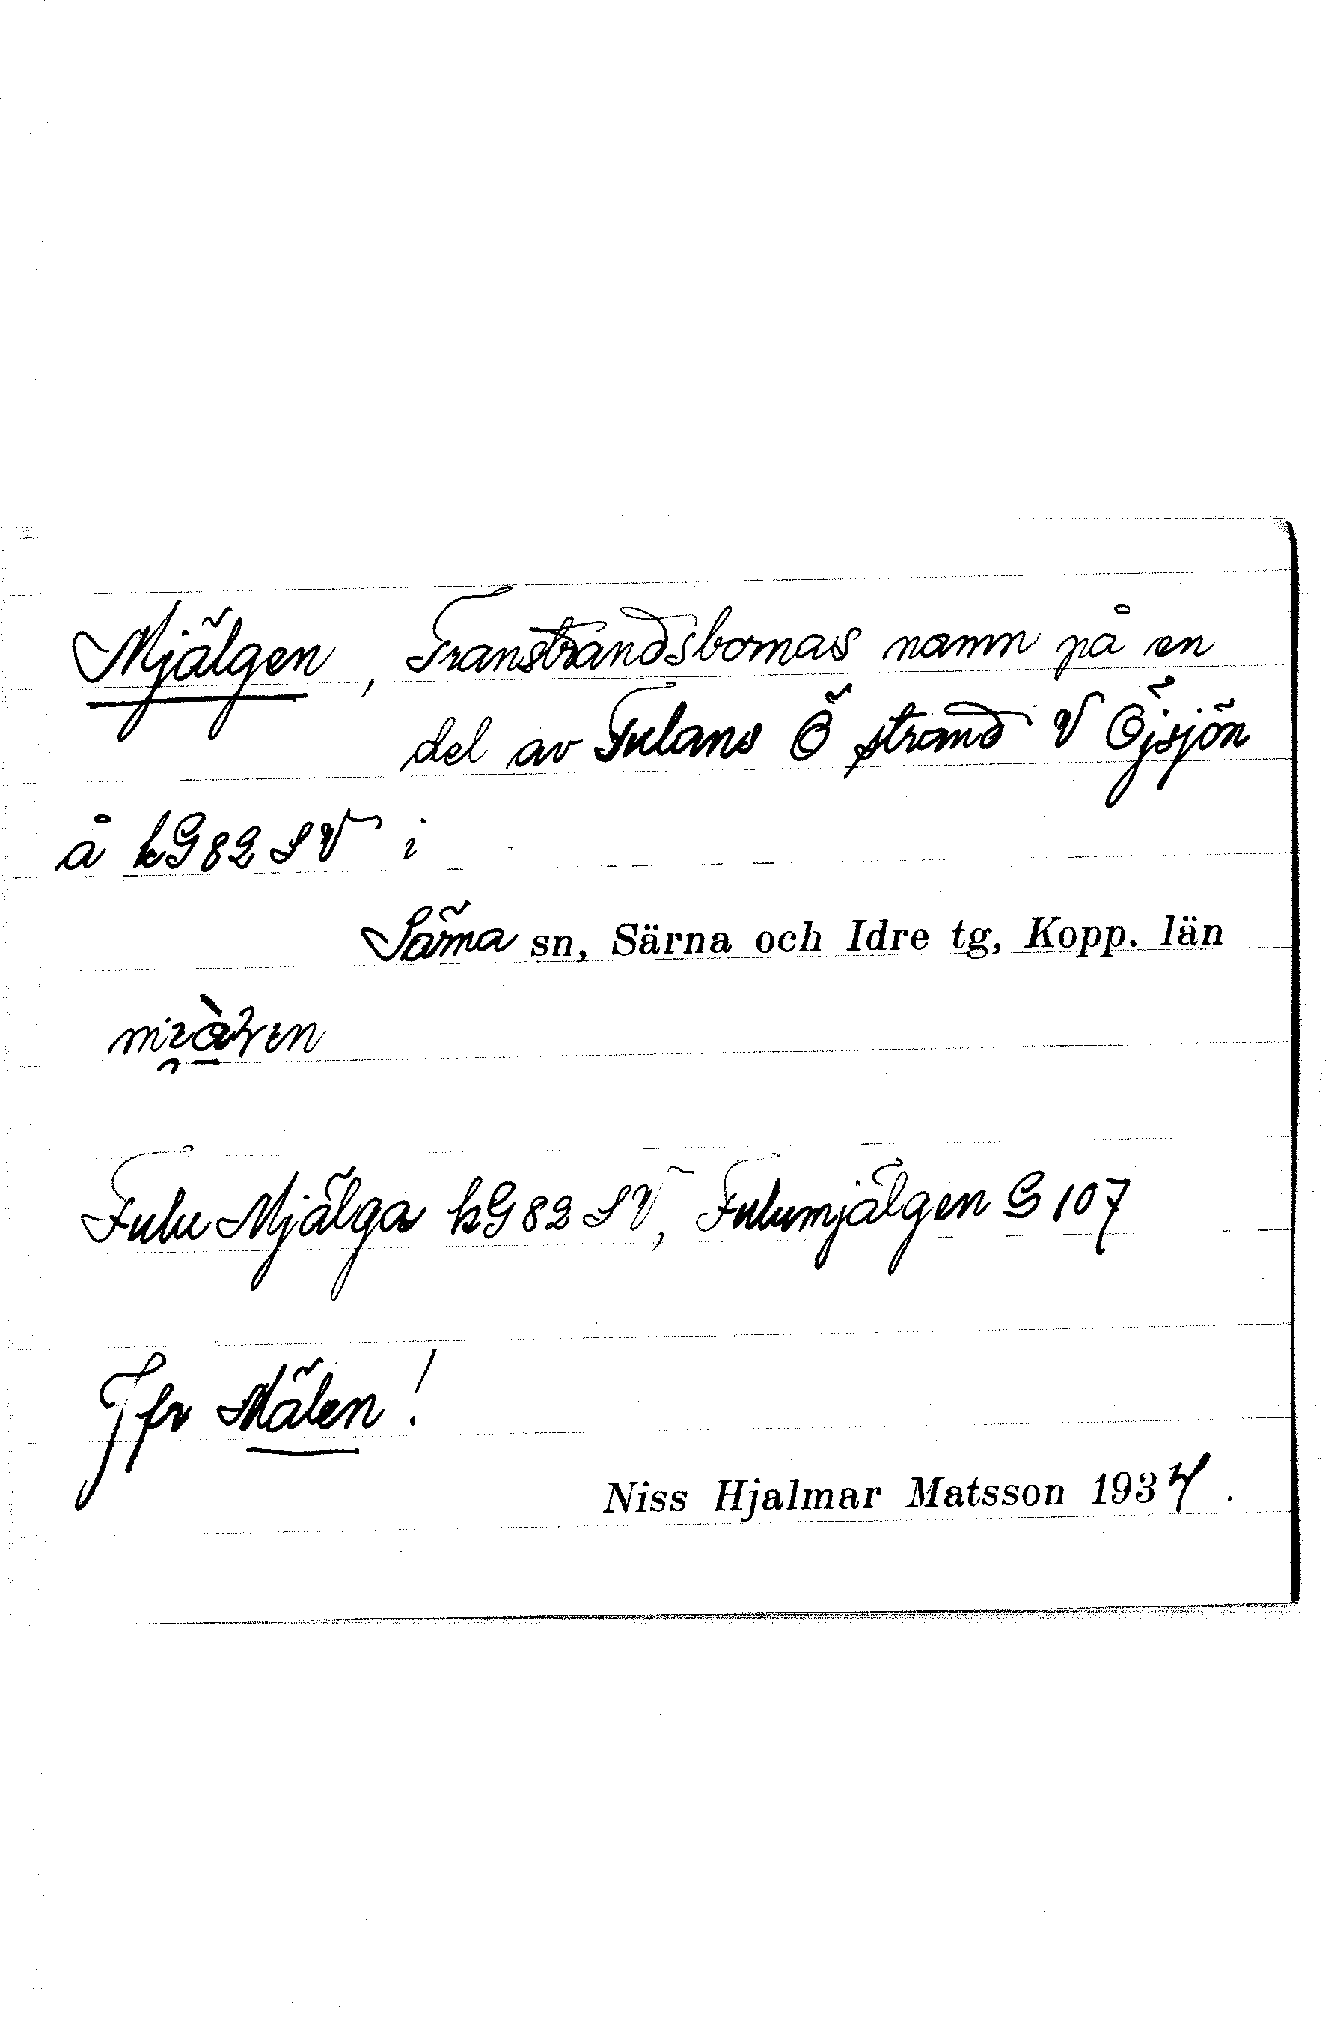 Mjälgen, Transtrandsbornas namn på en
del av Fulans Ö strand V Öjsjön
å kG82SV i
Särna sn, Särna och Idre tg, Kopp. län
Fulu Mjälga kG82SV, Fulumjälgen G 107
Jfr Mälen!
Niss Hjalmar Matsson 1934.